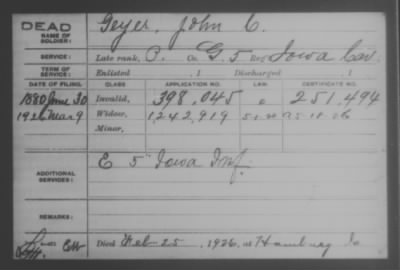 DEAD
NAME OF SOLDIER: Geyer, John C.
SERVICE: Late rank, P. Co. G. 5 Reg. Iowa Cav.
TERM OF SERVICE: Enlisted , 1 Discharged , 1
DATE OF FILING. CLASS APPLICATION NO. LAW. CERTIFICATE NO.
1880 June 30 Invalid, 398,045 251,494
1926 Mar 9 Widow, 1,242,919
Minor,
ADDITIONAL SERVICES: E 5" Iowa Inf.
REMARKS:
Died Feb 25, 1926, at Hamburg Ia